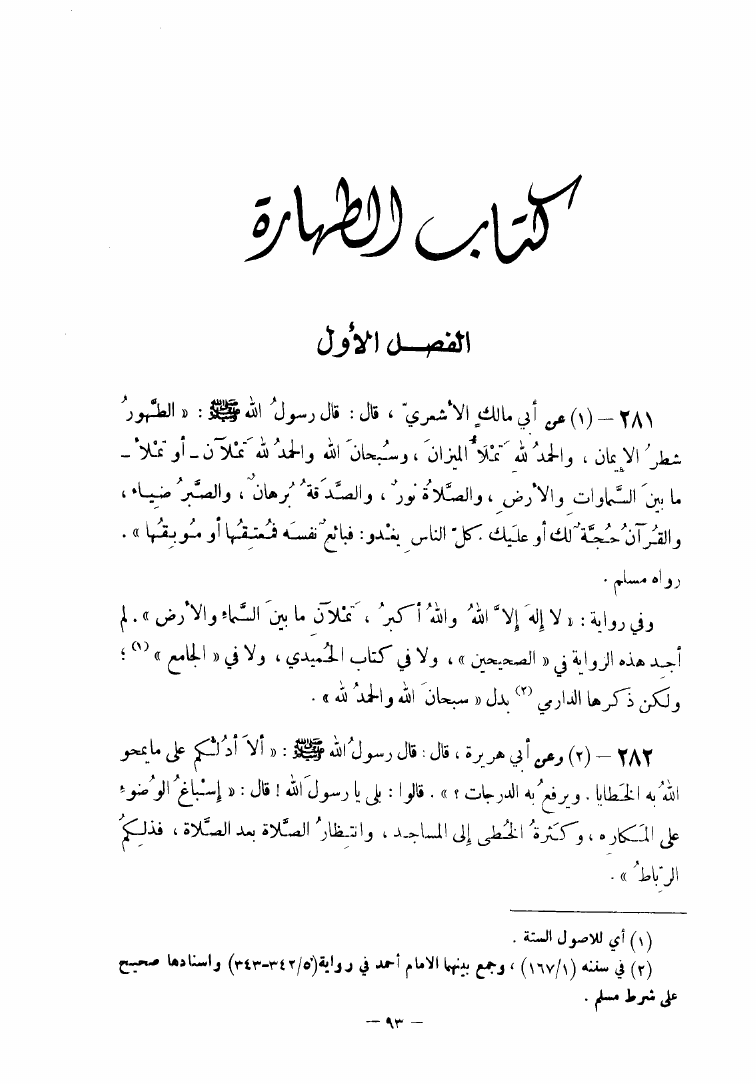 كتاب الطهارة
الفصل الأول
٢٨١ – (١) عن أبي مالكٍ الأشعريّ ، قال : قال رسولُ الله ﷺ : « الطَّهورُ
شطرُ الإيمان ، والحمدُ لله تَمْلَأُ الميزانَ ، وسُبحانَ الله والحمدُ لله تَملآن ـ أو تملأ ـ
ما بينَ السَّماوات والأرض ، والصَّلاةُ نورٌ ، والصَّدَقةُ بُرهانٌ ، والصَّبرُ ضِياء ،
والقُرآنُ حُجَّةٌ لكَ أو عليكَ . كلّ الناس يغْدو : فبائعٌ نفسَه فمُعتِقُها أو مُوبِقُها » .
رواه مسلم .
وفي رواية : « لا إلهَ إلاَّ اللهُ واللهُ أكبرُ ، تَمْلآن ما بينَ السَّماء والأرض » . لم
أجد هذه الرواية في « الصحيحين » ، ولا في كتاب الحُميدي ، ولا في « الجامع » (١) ؛
ولكن ذكرها الدارمي (٢) بدل « سبحانَ الله والحمدُ لله » .
٢٨٢ – (٢) وعن أبي هريرة ، قال : قال رسولُ الله ﷺ : « ألاَ أدلُّكم على ما يمحو
اللهُ به الخَطايا . ويرفعُ به الدرجات ؟ » . قالوا : بلى يا رسولَ الله ! قال : « إسْباغُ الوُضوءِ
على المَكاره ، وكَثرةُ الخُطى إلى المساجد ، وانتِظارُ الصَّلاة بعد الصَّلاة ، فذلِكمُ
الرِّباطُ » .
(١) أي للاصول الستة .
(٢) في سننه (١/١٦٧) ، وجمع بينهما الامام أحمد في رواية (٥/٣٤٢–٣٤٣) واسنادها صحيح
على شرط مسلم .
– ٩٣ –